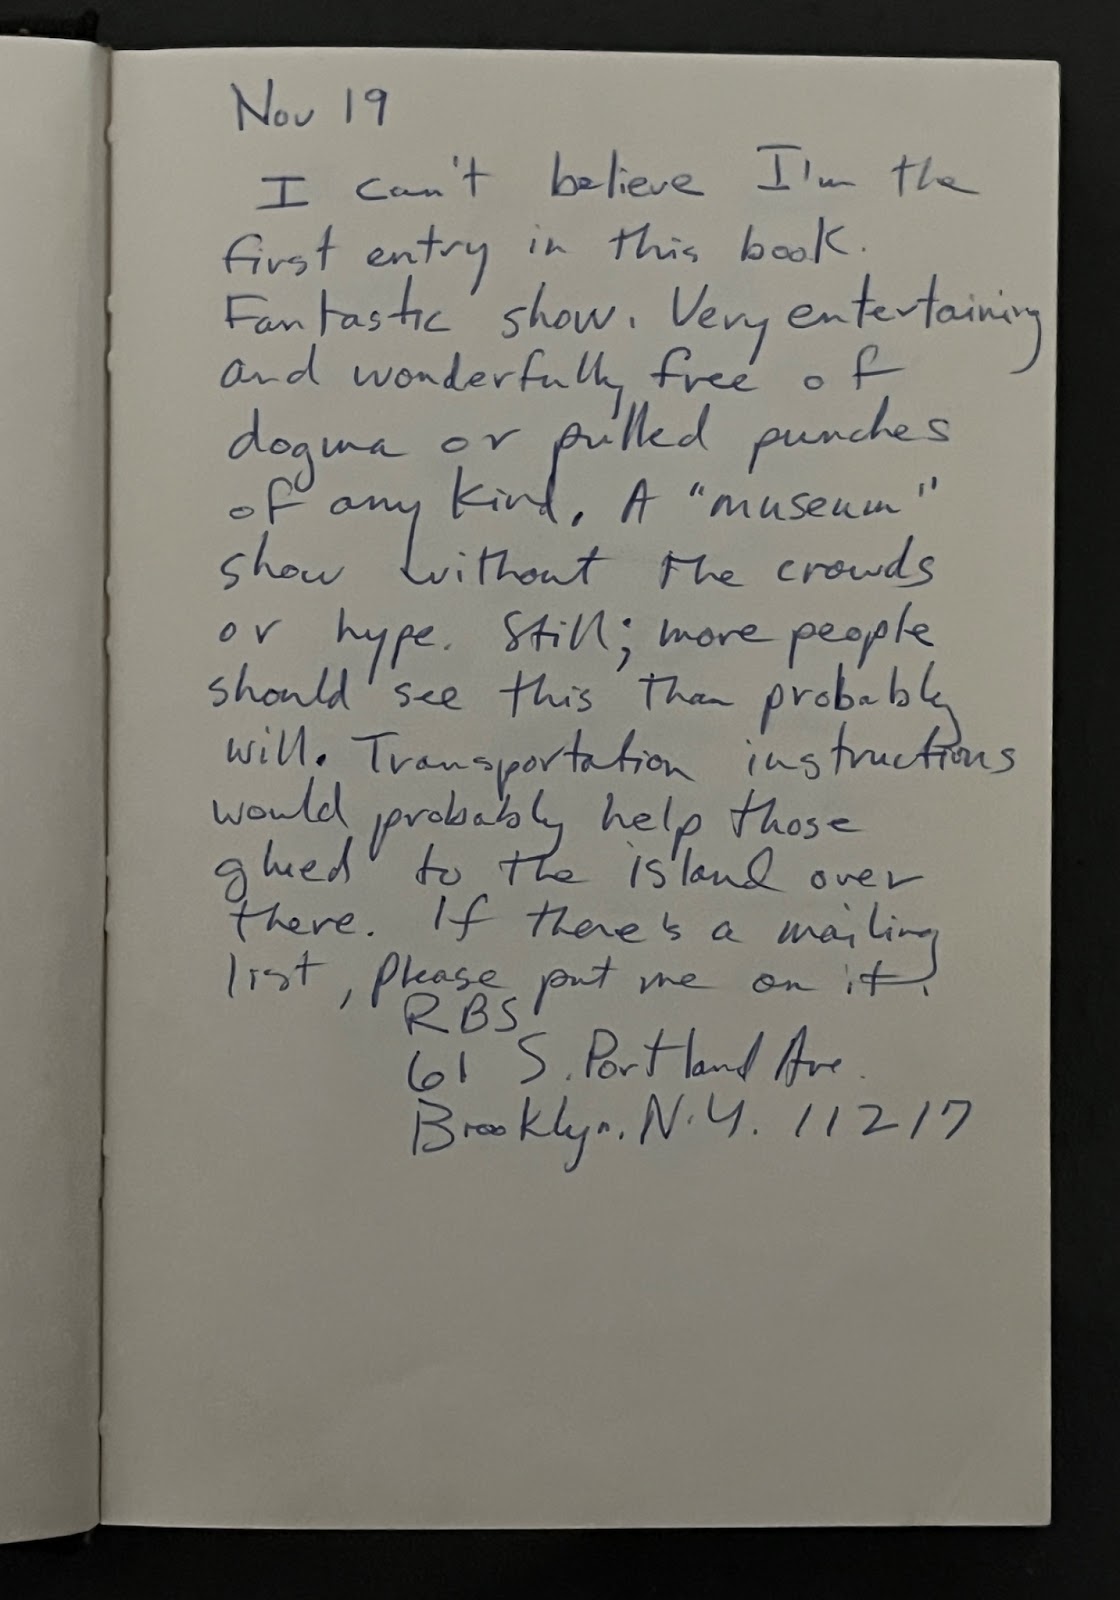 Nov 19
I can't believe I'm the
first entry in this book.
Fantastic show. Very entertaining
and wonderfully free of
dogma or pulled punches
of any kind. A "museum"
show without the crowds
or hype. Still; more people
should see this than probably
will. Transportation instructions
would probably help those
glued to the island over
there. If there's a mailing
list, please put me on it.
RBS
61 S. Portland Ave.
Brooklyn. N.Y. 11217